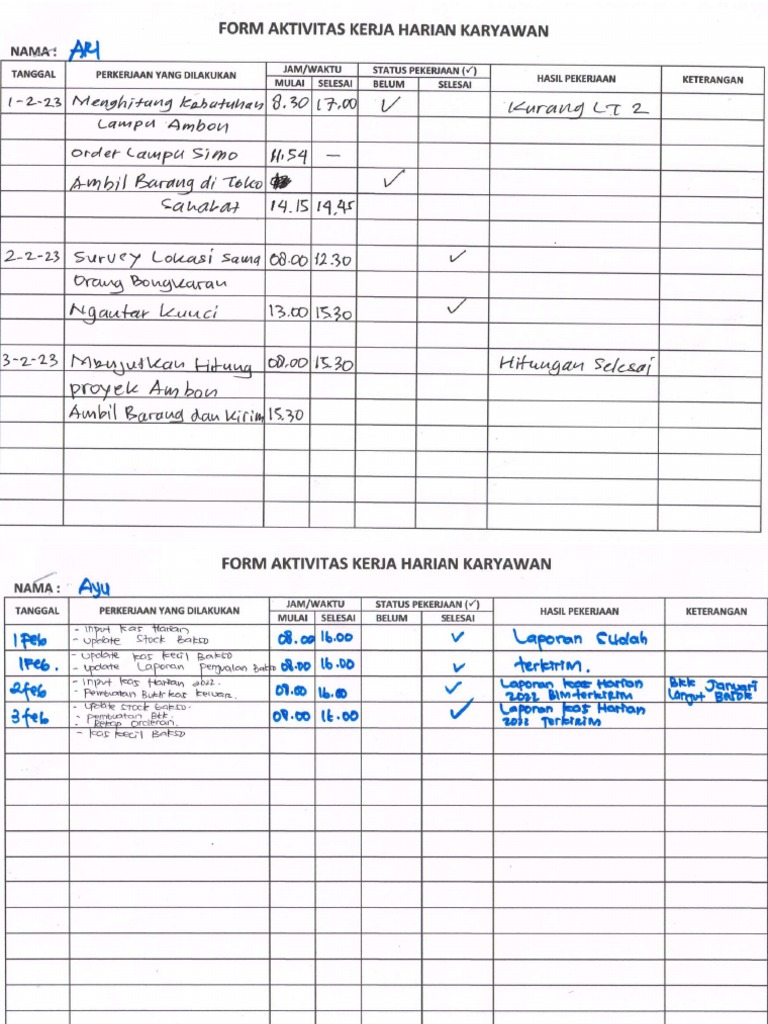 FORM AKTIVITAS KERJA HARIAN KARYAWAN
NAMA : ARI
TANGGAL PERKERJAAN YANG DILAKUKAN JAM/WAKTU STATUS PEKERJAAN (✓) HASIL PEKERJAAN KETERANGAN
MULAI SELESAI BELUM SELESAI
1-2-23 Menghitung Kebutuhan 8.30 17.00 ✓ Kurang LT 2
Lampu Ambon
Order Lampu Simo 11.54 —
Ambil Barang di Toko ✓
Sahabat 14.15 14.45
2-2-23 Survey Lokasi Sama 08.00 12.30 ✓
Orang Bongkaran
Ngantar Kunci 13.00 15.30 ✓
3-2-23 Hitung 08.00 15.30 Hitungan Selesai
proyek Ambon
Ambil Barang dan Kirim 15.30
FORM AKTIVITAS KERJA HARIAN KARYAWAN
NAMA : Ayu
TANGGAL PERKERJAAN YANG DILAKUKAN JAM/WAKTU STATUS PEKERJAAN (✓) HASIL PEKERJAAN KETERANGAN
MULAI SELESAI BELUM SELESAI
- Input kas Harian
1 Feb - Update Stock Bakso 08.00 16.00 ✓ Laporan Sudah
- Update kas kecil Bakso
1 Feb. - Update Laporan Penjualan Bakso 08.00 16.00 ✓ terkirim.
- Input kas Harian 2022. Laporan kas Harian BKK Januari
2 feb - Pembuatan Bukti kas keluar. 08.00 16.00 ✓ 2022 Blm terkirim Lanjut Besok
- Update stock bakso. Laporan kas Harian
3 feb - pembuatan BKK. 08.00 16.00 ✓ 2022 Terkirim
- Rekap
- kas kecil Bakso